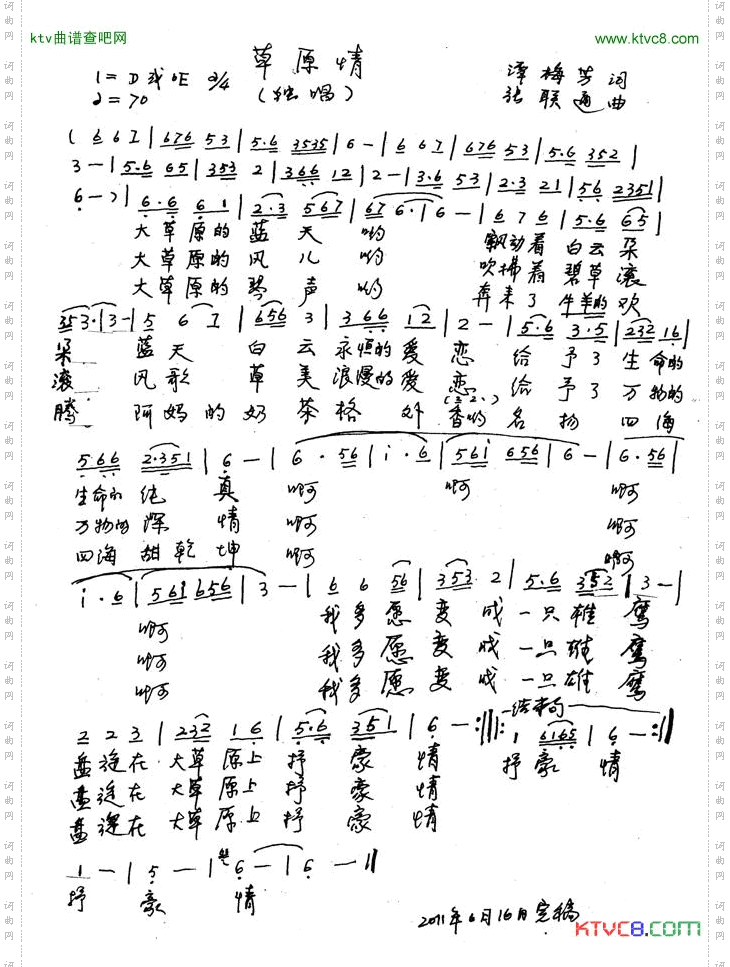 ktv曲谱查吧网
www.ktvc8.com
草原情
1=D或bE 2/4
谭梅芳 词
♩=70
(独唱)
张联通 曲
( 6 6 1 | 676 53 | 5·6 3535 | 6 - | 6 6 1 | 676 53 | 5·6 352 |
3 - | 5·6 65 | 353 2 | 366 12 | 2 - | 3·6 53 | 2·3 21 | 56 2351 |
6 - ) | 6·6 61 | 2·3 567 | 67 6· | 6 - | 6 7 6 | 5·6 65 |
大草原的蓝天哟 飘动着白云朵
大草原的风儿哟 吹拂着碧草滚
大草原的琴声哟 奔来了牛羊的欢
353· | 3 - | 5 6 1 | 656 3 | 3 66 12 | 2 - | 5·6 3·5 | 232 16 |
朵 蓝天白云永恒的爱恋给予了生命的
滚 风歌草美浪漫的爱恋给予了万物的
腾 阿妈的奶茶格外香哟名扬四海
566 2·351 | 6 - | 6 · 56 | i · 6 | 56i 656 | 6 - | 6 · 56 |
生命的纯真 啊 啊 啊
万物的深情 啊 啊
四海甜乾坤 啊 啊
i · 6 | 56i 656 | 3 - | 6 6 56 | 353 2 | 5·6 352 | 3 - |
啊 我多愿变成一只雄鹰
啊 我多愿变成一只雄鹰
啊 我多愿变成一只雄鹰
结束句
2 2 3 | 232 16 | 5·6 351 | 6 - :|| 1 6165 | 6 - :||
盘旋在大草原上抒豪情 抒豪情
盘旋在大草原上抒豪情
盘旋在大草原上抒豪情
1 - | 5 - | 6 - | 6 - ||
抒豪情
2011年6月16日完稿
KTVC8.COM
词曲网